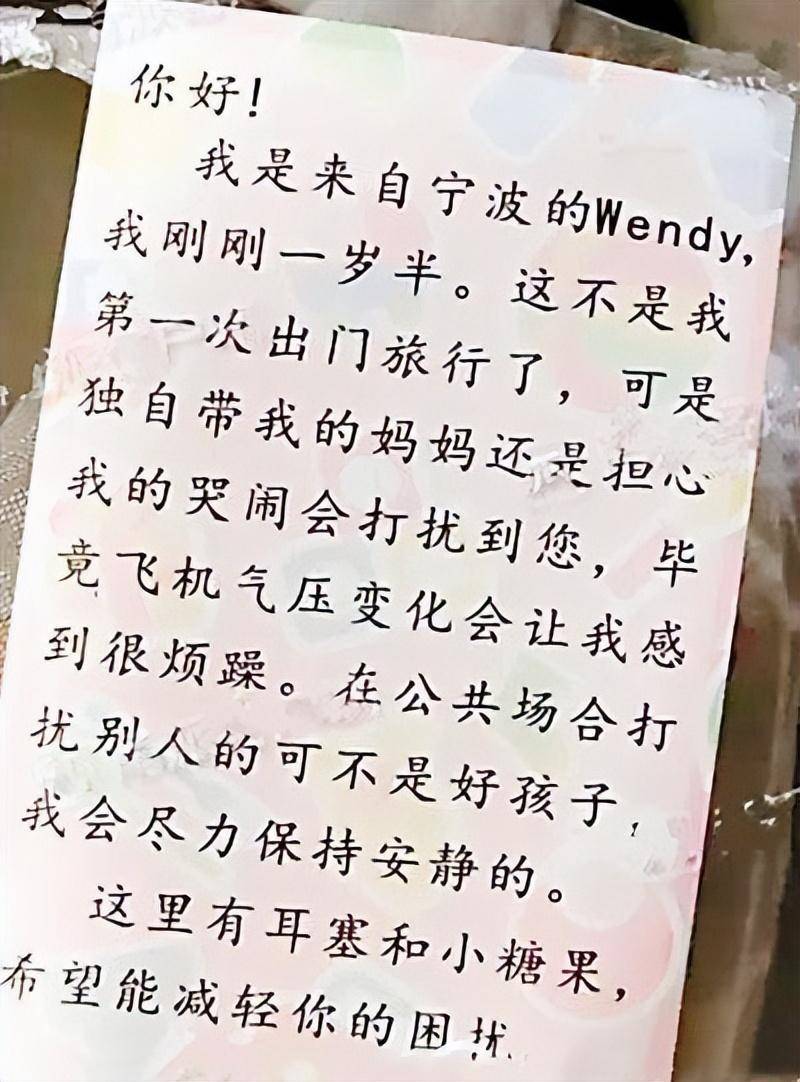 你好!
我是来自宁波的Wendy,
我刚刚一岁半。这不是我
第一次出门旅行了，可是
独自带我的妈妈还是担心
我的哭闹会打扰到您，毕
竟飞机气压变化会让我感
到很烦躁。在公共场合打
扰别人的可不是好孩子，
我会尽力保持安静的。
这里有耳塞和小糖果，
希望能减轻你的困扰